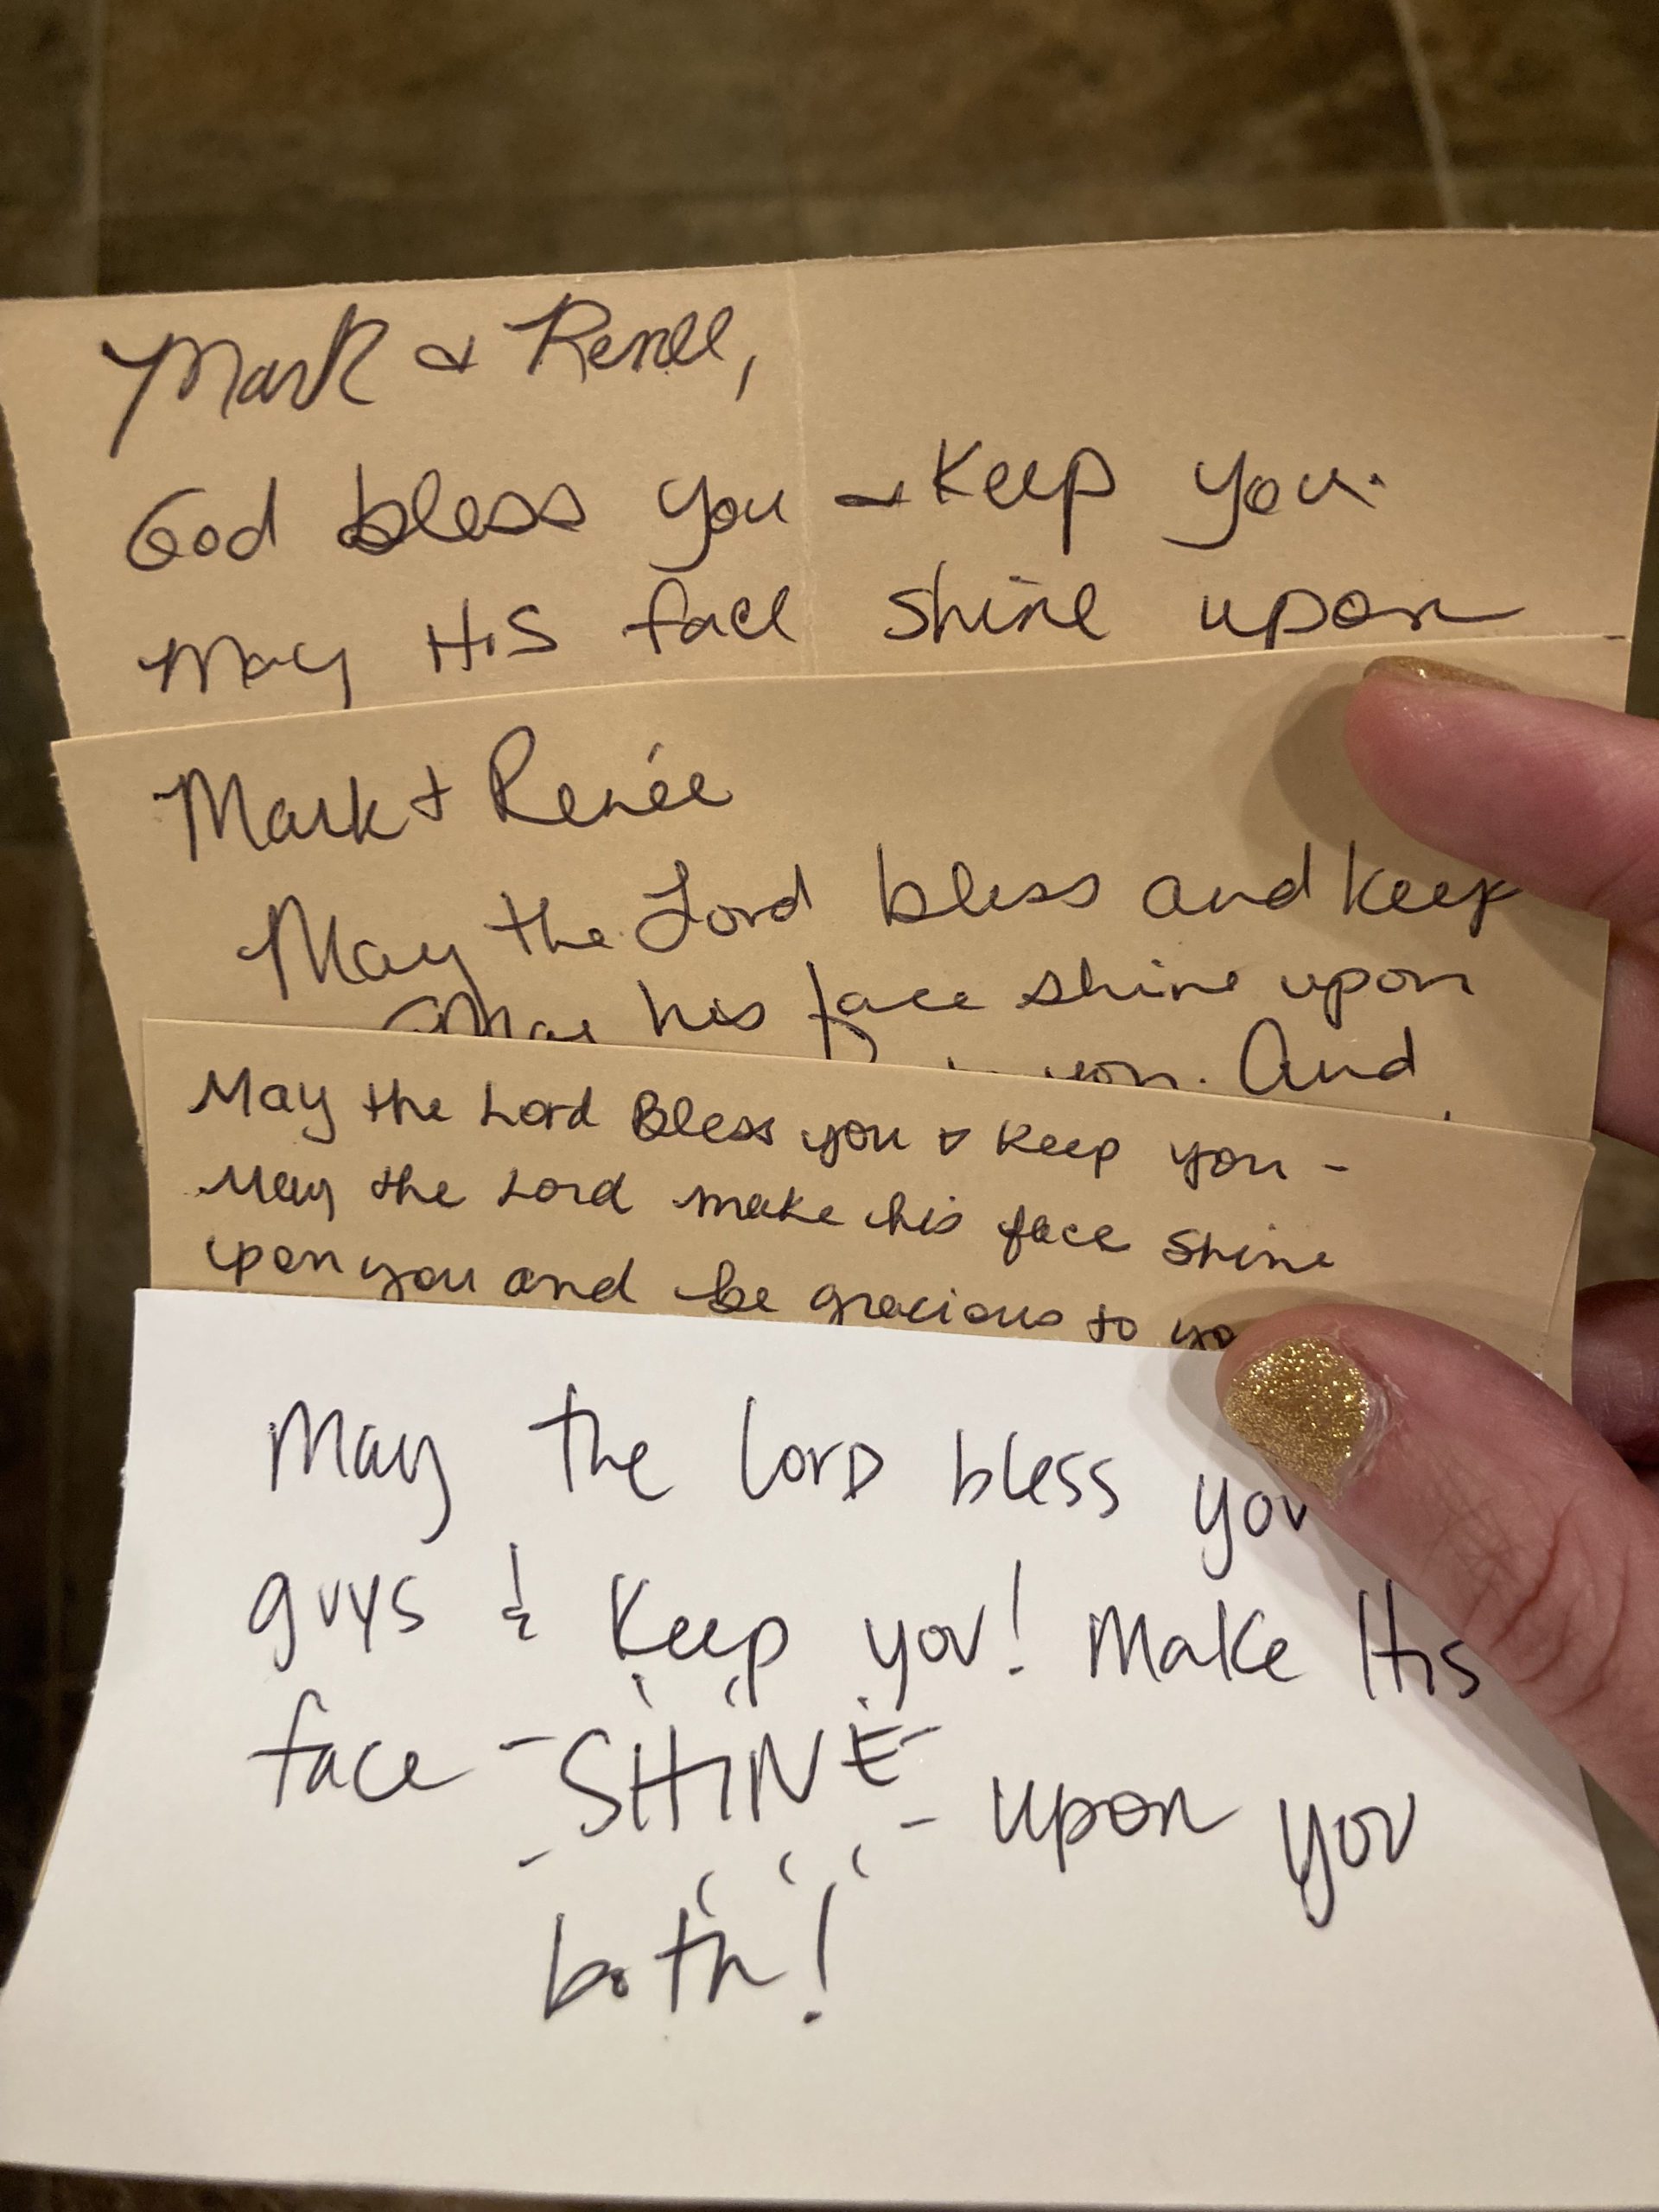 Mark & Renee,
God bless you & Keep you.
May HiS face shine upon
Mark + Renée
May the Lord bless and keep
May his face shine upon
you. And
May the Lord Bless you & keep you -
May the Lord make his face shine
upon you and be gracious to yo
May the lorD bless you
guys & Keep you! Make His
face SHINE upon you
both!